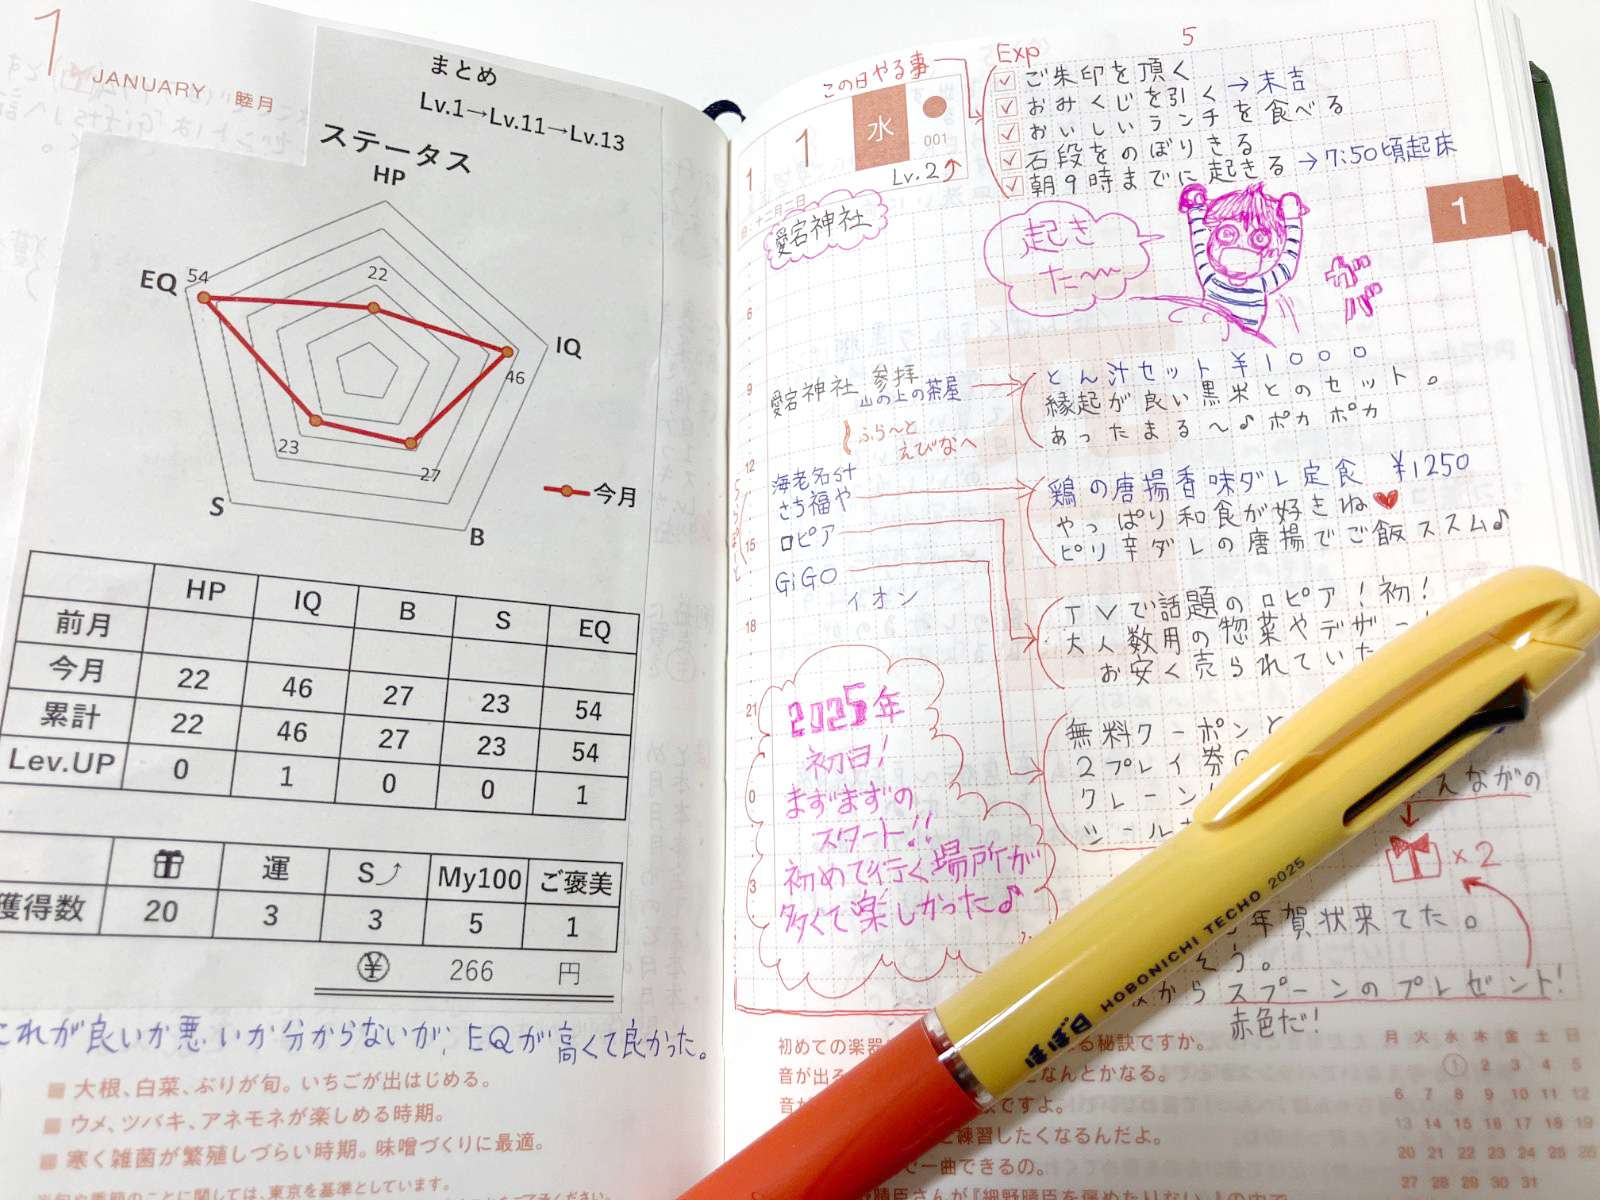 1 JANUARY 睦月
まとめ
Lv.1→Lv.11→Lv.13
ステータス
HP
EQ
54
22
IQ
46
23
27
S
B
今月
HP IQ B S EQ
前月
今月 22 46 27 23 54
累計 22 46 27 23 54
Lev.UP 0 1 0 0 1
運 S⤴ My100 ご褒美
獲得数 20 3 3 5 1
¥ 266 円
これが良いか悪いか分からないが、EQが高くて良かった。
■ 大根、白菜、ぶりが旬。いちごが出はじめる。
■ ウメ、ツバキ、アネモネが楽しめる時期。
■ 寒く雑菌が繁殖しづらい時期。味噌づくりに最適。
※旬や季節のことに関しては、東京を基準としています。
この日やる事
1 1 水
001
Lv.2↑
十二月二日
Exp
5
☑ ご朱印を頂く
☑ おみくじを引く → 末吉
☑ おいしいランチを食べる
☑ 石段をのぼりきる
☑ 朝9時までに起きる → 7:50頃起床
1
愛宕神社
起き
た〜〜
ガバ
6
9
12
15
18
21
0
3
愛宕神社 参拝
山の上の茶屋
とん汁セット ¥1000
縁起が良い黒米とのセット。
あったまる〜♪ポカポカ
ふら〜と
えびなへ
海老名st
さち福や
ロピア
GiGO
イオン
鶏の唐揚香味ダレ定食 ¥1250
やっぱり和食が好きね♥
ピリ辛ダレの唐揚でご飯ススム♪
TVで話題のロピア!初!
大人数用の惣菜やデザー
お安く売られていた
無料クーポンと
2プレイ券
クレーン
シール
えながの
×2
年賀状来てた。
そう。
からスプーンのプレゼント!
赤色だ!
2025年
初日!
まずまずの
スタート!!
初めて行く場所が
多くて楽しかった♪
ほぼ日 HOBONICHI TECHO 2025
初めての楽器
る秘訣ですか。
音が出る
なんとかなる。
音が
ですよ。
練習したくなるんだよ。
で一曲できるの。
細野晴臣さんが『細野晴臣を褒めたりない』の中で
月 火 水 木 金 土 日
1 2 3 4 5
6 7 8 9 10 11 12
13 14 15 16 17 18 19
20 21 22 23 24 25 26
27 28 29 30 31